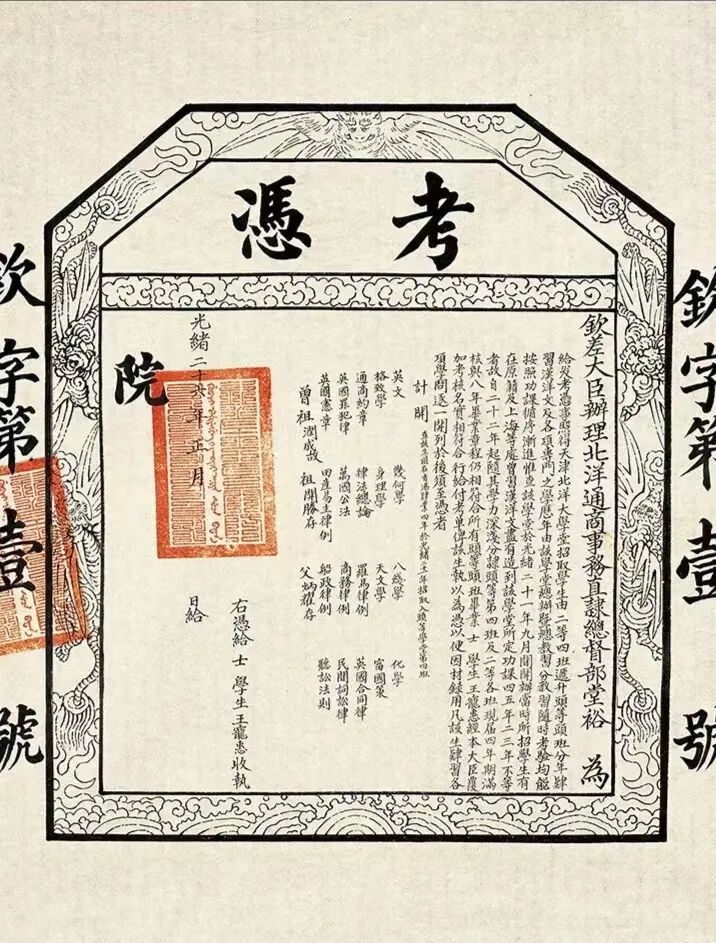 考憑
欽字第壹號
欽差大臣辦理北洋通商事務直隸總督部堂裕 為
給發考憑事照得天津北洋大學堂招取學生由二等四班遞升頭等頭班分年肄
習漢洋文及各項專門之學歷年由該學堂總辦暨總教習分教習隨時考驗均能
按照功課循序漸進惟查該學堂於光緒二十一年九月間開辦當時所招學生有
在原籍及上海等處曾習漢洋文盡有造到該學堂所定功課四五年二三年不等
者故自二十二年起隨其學力深淺分隸頭等第四班及二等各班現屆四年期滿
核與八年畢業章程仍相符合所有頭等頭班畢業士 學生王寵惠經本大臣覆
加考核名實相符合行給付考單俾該生執以為憑以便因材錄用凡該生肄習各
項學問逐一開列於後須至憑者
計開
直隸生前在香港肄業四年於光緒二十一年招取入頭等學堂第四班
英文 幾何學 八綫學 化學
格致學 身理學 天文學 富國策
通商約章 律法總論 羅馬律例 英國合同律
英國罪犯律 萬國公法 商務律例 民間詞訟律
英國憲章 田產易主律例 船政律例 聽訟法則
曾祖潤成故 祖開勝存 父炳耀存
右憑給 士 學生王寵惠收執
光緒二十六年正月
日給
院
欽字第壹號